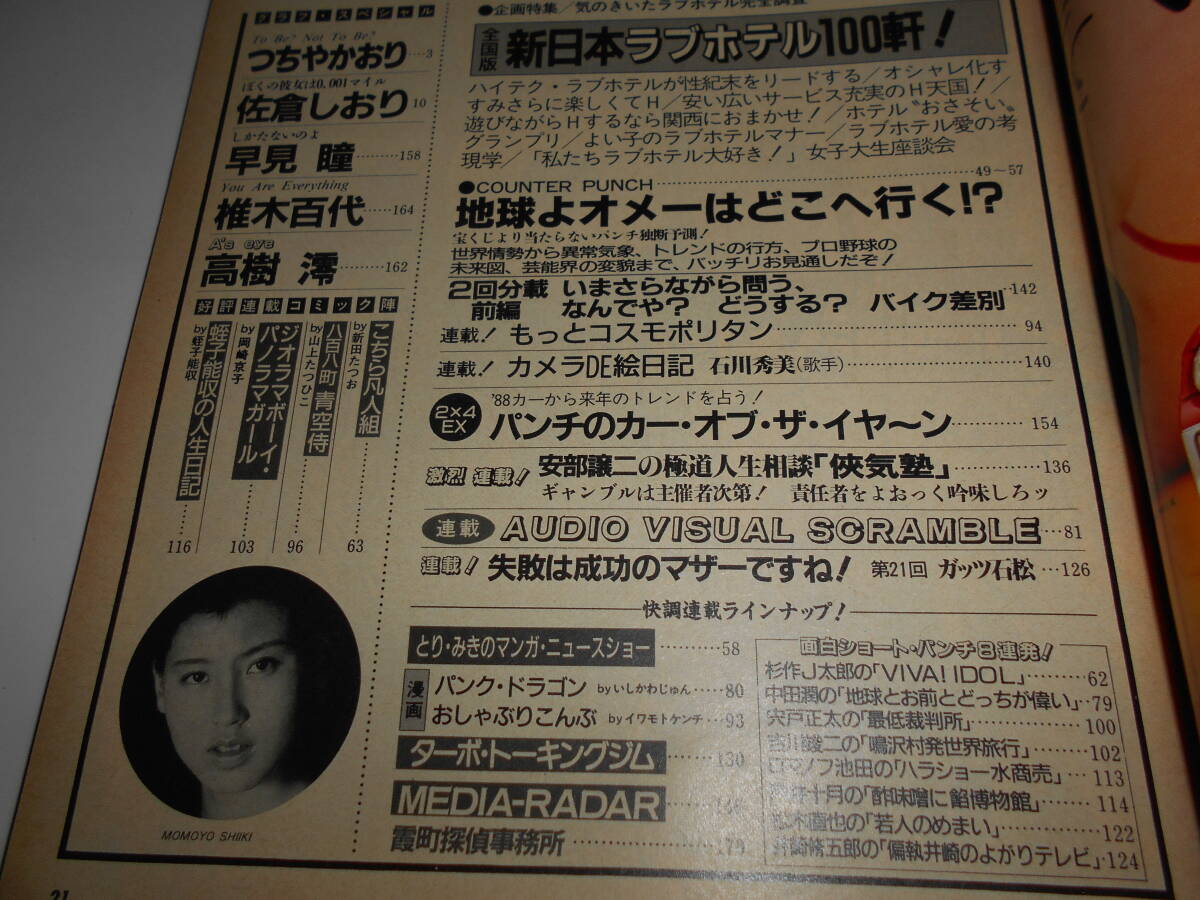 グラフ・スペシャル
To Be? Not To Be?
つちやかおり…3
ぼくの彼女は0.001マイル
佐倉しおり 10
しかたないのよ
早見 瞳………158
You Are Everything
椎木百代……164
A's eye
高樹 澪………162
好評連載コミック陣
こちら凡人組
by新田たつお
63
八百八町青空侍
by山上たつひこ
96
ジオラマボーイ・
パノラマガール
by岡崎京子
103
蛭子能収の人生日記
by蛭子能収
116
MOMOYO SHIIKI
●企画特集/気のきいたラブホテル完全調査
全国版 新日本ラブホテル100軒!
ハイテク・ラブホテルが性紀末をリードする/オシャレ化す
すみさらに楽しくてH/安い広いサービス充実のH天国!/
遊びながらHするなら関西におまかせ!/ホテル〝おさそい〟
グランプリ/よい子のラブホテルマナー/ラブホテル愛の考
現学/「私たちラブホテル大好き!」女子大生座談会
49～57
●COUNTER PUNCH
地球よオメーはどこへ行く!?
宝くじより当たらないパンチ独断予測!
世界情勢から異常気象、トレンドの行方、プロ野球の
未来図、芸能界の変貌まで、バッチリお見通しだぞ!
2回分載 いまさらながら問う、
前編 なんでや? どうする? バイク差別 …142
連載! もっとコスモポリタン……94
連載! カメラDE絵日記 石川秀美(歌手)……140
'88カーから来年のトレンドを占う!
2×4 EX パンチのカー・オブ・ザ・イヤ〜ン……154
激烈 連載! 安部譲二の極道人生相談「俠気塾」……136
ギャンブルは主催者次第! 責任者をよおっく吟味しろッ
連載 AUDIO VISUAL SCRAMBLE…81
連載! 失敗は成功のマザーですね! 第21回 ガッツ石松…126
快調連載ラインナップ!
とり・みきのマンガ・ニュースショー……58
漫画 パンク・ドラゴン byいしかわじゅん……80
おしゃぶりこんぶ byイワモトケンチ…93
ターボ・トーキングジム……130
MEDIA-RADAR……146
霞町探偵事務所……179
面白ショート・パンチ8連発!
杉作J太郎の「VIVA! IDOL」……62
中田潤の「地球とお前とどっちが偉い」・79
宍戸正太の「最低裁判所」……100
吉川峻二の「鳴沢村発世界旅行」……102
ロマノフ池田の「ハラショー水商売」…113
十月の「酢味噌に餡博物館」……114
木直也の「若人のめまい」……122
井崎脩五郎の「偏執井崎のよがりテレビ」・124